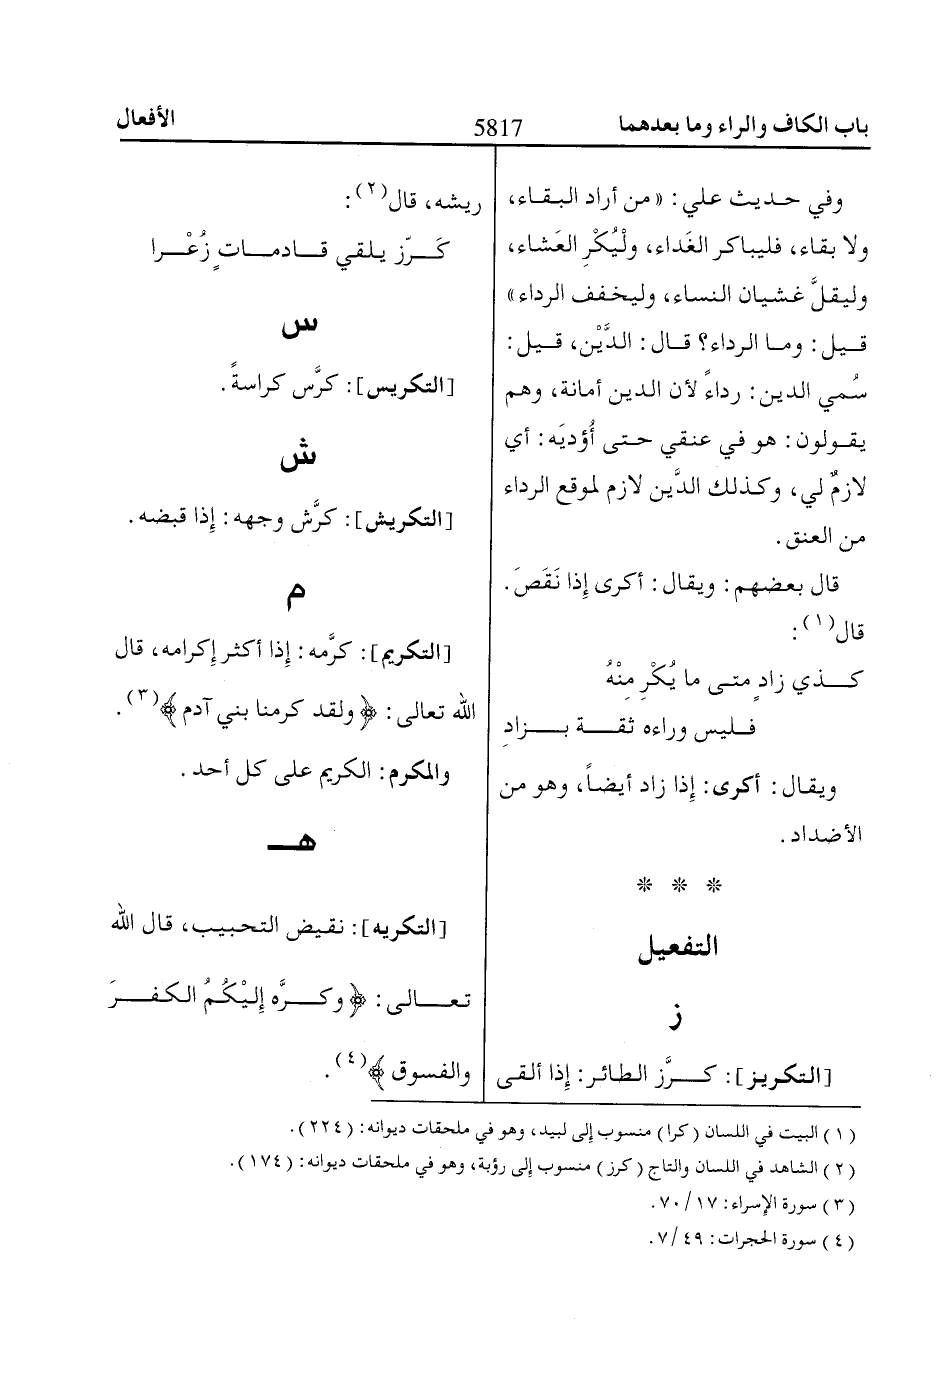 باب الكاف والراء وما بعدهما
5817
الأفعال
وفي حديث علي: «من أراد البقاء،
ولا بقاء، فليباكر الغَداء، ولْيُكْرِ العَشاء،
وليقلَّ غشيان النساء، وليخفف الرداء»
قيل: وما الرداء؟ قال: الدَّيْن، قيل:
سُمي الدين: رداءً لأن الدين أمانة، وهم
يقولون: هو في عنقي حتى أُؤديَه: أي
لازمٌ لي، وكذلك الدَّين لازم لموقع الرداء
من العنق.
قال بعضهم: ويقال: أكرى إذا نَقَصَ.
قال(١):
كذي زادٍ متى ما يُكْرِ مِنْهُ
فليس وراءه ثقة بزادِ
ويقال: أكرى: إذا زاد أيضاً، وهو من
الأضداد.
* * *
التفعيل
ز
[التكريز]: كرَّز الطائر: إذا ألقى
ريشه، قال(٢):
كَرّز يلقي قادماتٍ زُعْرا
س
[التكريس]: كرَّس كراسةً.
ش
[التكريش]: كرَّش وجهه: إذا قبضه.
م
[التكريم]: كرَّمه: إذا أكثر إكرامه، قال
الله تعالى: ﴿ولقد كرمنا بني آدم﴾(٣).
والمكرم: الكريم على كل أحد.
هـ
[التكريه]: نقيض التحبيب، قال الله
تعالى: ﴿وكرَّه إليْكُمُ الكفرَ
والفسوق﴾(٤).
(١) البيت في اللسان (كرا) منسوب إلى لبيد، وهو في ملحقات ديوانه: (٢٢٤).
(٢) الشاهد في اللسان والتاج (كرز) منسوب إلى رؤبة، وهو في ملحقات ديوانه: (١٧٤).
(٣) سورة الإسراء: ١٧/ ٧٠.
(٤) سورة الحجرات: ٤٩/ ٧.